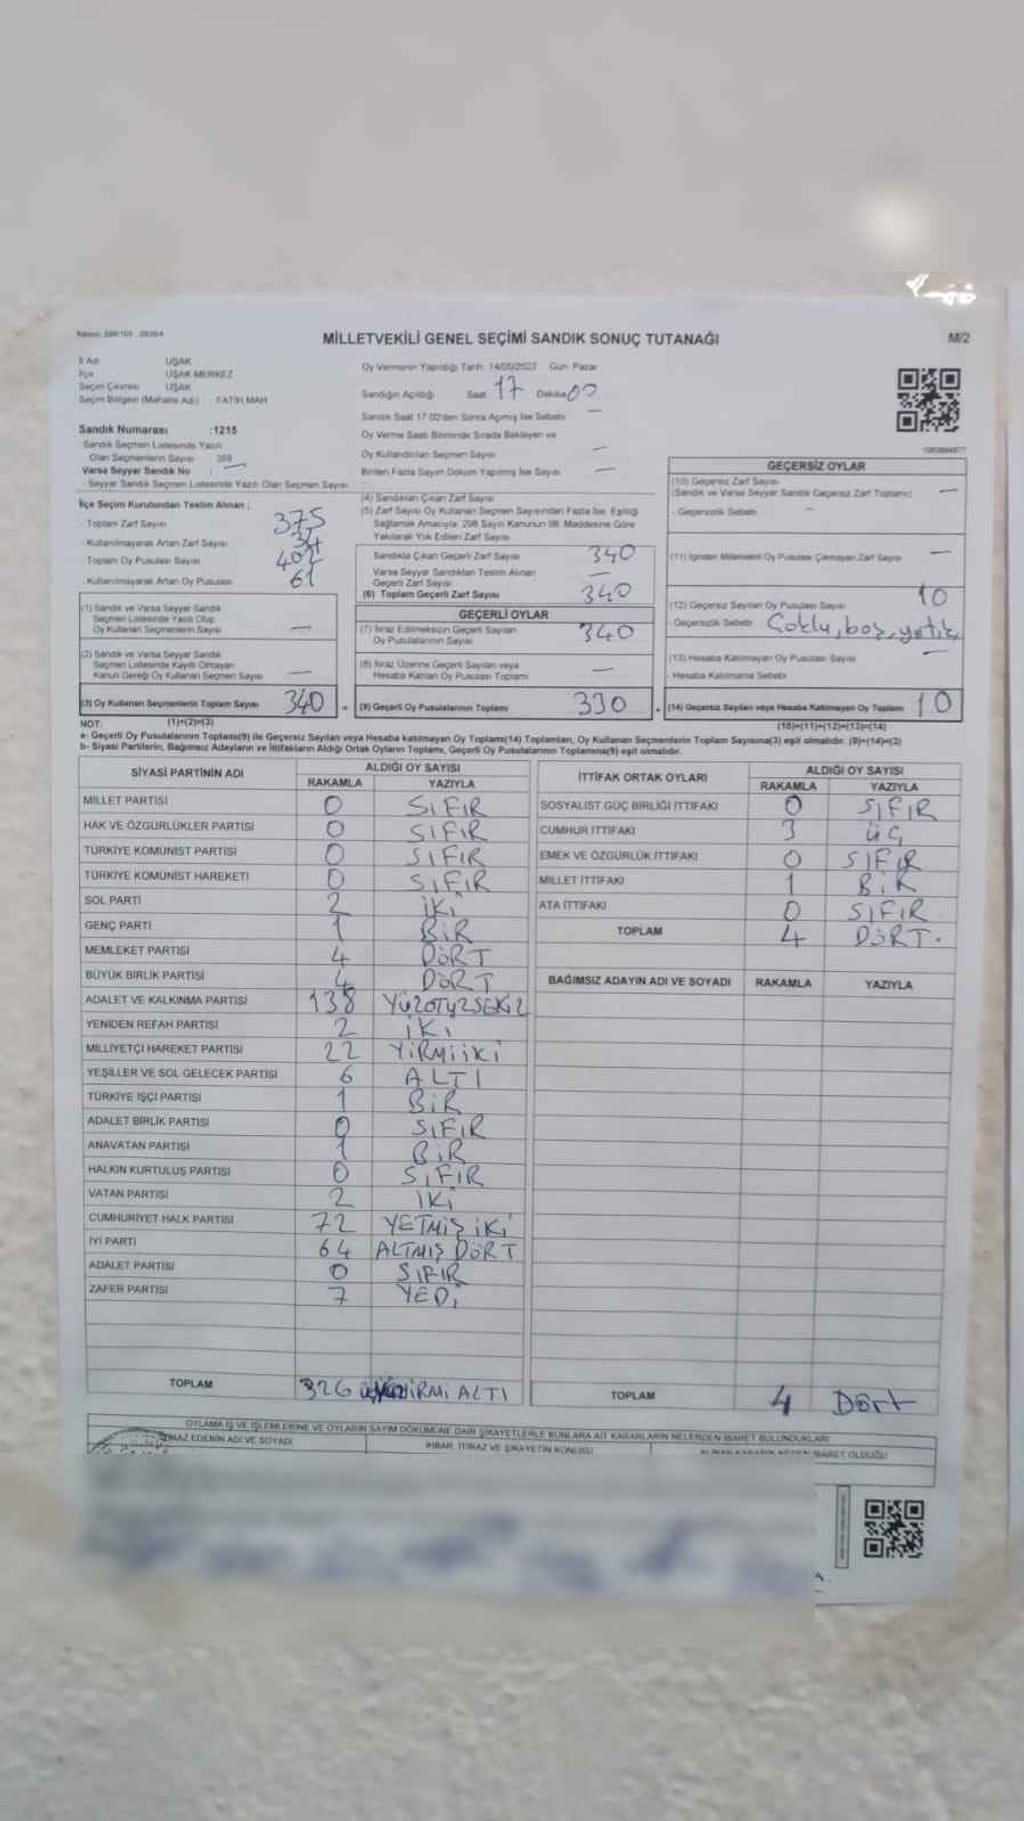 MİLLETVEKİLİ GENEL SEÇİMİ SANDIK SONUÇ TUTANAĞI
M/2
İl Adı UŞAK
İlçe UŞAK MERKEZ
Seçim Çevresi UŞAK
Seçim Bölgesi (Mahalle Adı) FATİH MAH
Sandık Numarası :1215
Sandık Seçmen Listesinde Yazılı
Olan Seçmenlerin Sayısı
Varsa Seyyar Sandık No : —
- Seyyar Sandık Seçmen Listesinde Yazılı Olan Seçmen Sayısı
Oy Vermenin Yapıldığı Tarih: 14/05/2023 Gün: Pazar
Sandığın Açıldığı Saat 17 Dakika 00
Sandık Saat 17.00'den Sonra Açılmış İse Sebebi —
Oy Verme Saati Bitiminde Sırada Bekleyen ve
Oy Kullandırılan Seçmen Sayısı —
Birden Fazla Sayım Döküm Yapılmış İse Sayısı —
İlçe Seçim Kurulundan Teslim Alınan :
- Toplam Zarf Sayısı 375
- Kullanılmayarak Artan Zarf Sayısı
- Toplam Oy Pusulası Sayısı 402
- Kullanılmayarak Artan Oy Pusulası 61
(1) Sandık ve Varsa Seyyar Sandık
Seçmen Listesinde Yazılı Olup
Oy Kullanan Seçmenlerin Sayısı —
(2) Sandık ve Varsa Seyyar Sandık
Seçmen Listesinde Kayıtlı Olmayan
Kanun Gereği Oy Kullanan Seçmen Sayısı —
(3) Oy Kullanan Seçmenlerin Toplam Sayısı 340
(1)+(2)=(3)
(4) Sandıktan Çıkan Zarf Sayısı
(5) Zarf Sayısı Oy Kullanan Seçmen Sayısından Fazla İse, Eşitliği
Sağlamak Amacıyla; 298 Sayılı Kanunun 98. Maddesine Göre
Yakılarak Yok Edilen Zarf Sayısı
Sandıkta Çıkan Geçerli Zarf Sayısı 340
Varsa Seyyar Sandıktan Teslim Alınan
Geçerli Zarf Sayısı —
(6) Toplam Geçerli Zarf Sayısı 340
GEÇERLİ OYLAR
(7) İtiraz Edilmeksizin Geçerli Sayılan
Oy Pusulalarının Sayısı 340
(8) İtiraz Üzerine Geçerli Sayılan veya
Hesaba Katılan Oy Pusulası Toplamı —
(9) Geçerli Oy Pusulalarının Toplamı 330
GEÇERSİZ OYLAR
(10) Geçersiz Zarf Sayısı
(Sandık ve Varsa Seyyar Sandık Geçersiz Zarf Toplamı) —
- Geçersizlik Sebebi —
(11) İçinden Milletvekili Oy Pusulası Çıkmayan Zarf Sayısı —
(12) Geçersiz Sayılan Oy Pusulası Sayısı 10
- Geçersizlik Sebebi Çoklu, boş, yırtık,
(13) Hesaba Katılmayan Oy Pusulası Sayısı —
- Hesaba Katılmama Sebebi
(14) Geçersiz Sayılan veya Hesaba Katılmayan Oy Toplamı 10
(10)+(11)+(12)+(13)=(14)
NOT:
a- Geçerli Oy Pusulalarının Toplamı(9) ile Geçersiz Sayılan veya Hesaba katılmayan Oy Toplamı(14) Toplamları, Oy Kullanan Seçmenlerin Toplam Sayısına(3) eşit olmalıdır. (9)+(14)=(3)
b- Siyasi Partilerin, Bağımsız Adayların ve İttifakların Aldığı Ortak Oyların Toplamı, Geçerli Oy Pusulalarının Toplamına(9) eşit olmalıdır.
SİYASİ PARTİNİN ADI ALDIĞI OY SAYISI
RAKAMLA YAZIYLA
MİLLET PARTİSİ 0 SIFIR
HAK VE ÖZGÜRLÜKLER PARTİSİ 0 SIFIR
TÜRKİYE KOMÜNİST PARTİSİ 0 SIFIR
TÜRKİYE KOMÜNİST HAREKETİ 0 SIFIR
SOL PARTİ 2 İKİ
GENÇ PARTİ 1 BİR
MEMLEKET PARTİSİ 4 DÖRT
BÜYÜK BİRLİK PARTİSİ 4 DÖRT
ADALET VE KALKINMA PARTİSİ 138 YÜZOTUZSEKİZ
YENİDEN REFAH PARTİSİ 2 İKİ
MİLLİYETÇİ HAREKET PARTİSİ 22 YİRMİİKİ
YEŞİLLER VE SOL GELECEK PARTİSİ 6 ALTI
TÜRKİYE İŞÇİ PARTİSİ 1 BİR
ADALET BİRLİK PARTİSİ 0 SIFIR
ANAVATAN PARTİSİ 1 BİR
HALKIN KURTULUŞ PARTİSİ 0 SIFIR
VATAN PARTİSİ 2 İKİ
CUMHURİYET HALK PARTİSİ 72 YETMİŞ İKİ
İYİ PARTİ 64 ALTMIŞ DÖRT
ADALET PARTİSİ 0 SIFIR
ZAFER PARTİSİ 7 YEDİ
TOPLAM 326 ALTI
İTTİFAK ORTAK OYLARI ALDIĞI OY SAYISI
RAKAMLA YAZIYLA
SOSYALİST GÜÇ BİRLİĞİ İTTİFAKI 0 SIFIR
CUMHUR İTTİFAKI 3 ÜÇ
EMEK VE ÖZGÜRLÜK İTTİFAKI 0 SIFIR
MİLLET İTTİFAKI 1 BİR
ATA İTTİFAKI 0 SIFIR
TOPLAM 4 DÖRT.
BAĞIMSIZ ADAYIN ADI VE SOYADI RAKAMLA YAZIYLA
TOPLAM 4 Dört
OYLAMA İŞ VE İŞLEMLERİNE VE OYLARIN SAYIM DÖKÜMÜNE DAİR ŞİKAYETLERLE BUNLARA AİT KARARLARIN NELERDEN İBARET BULUNDUKLARI
İTİRAZ EDENİN ADI VE SOYADI
İHBAR, İTİRAZ VE ŞİKAYETİN KONUSU